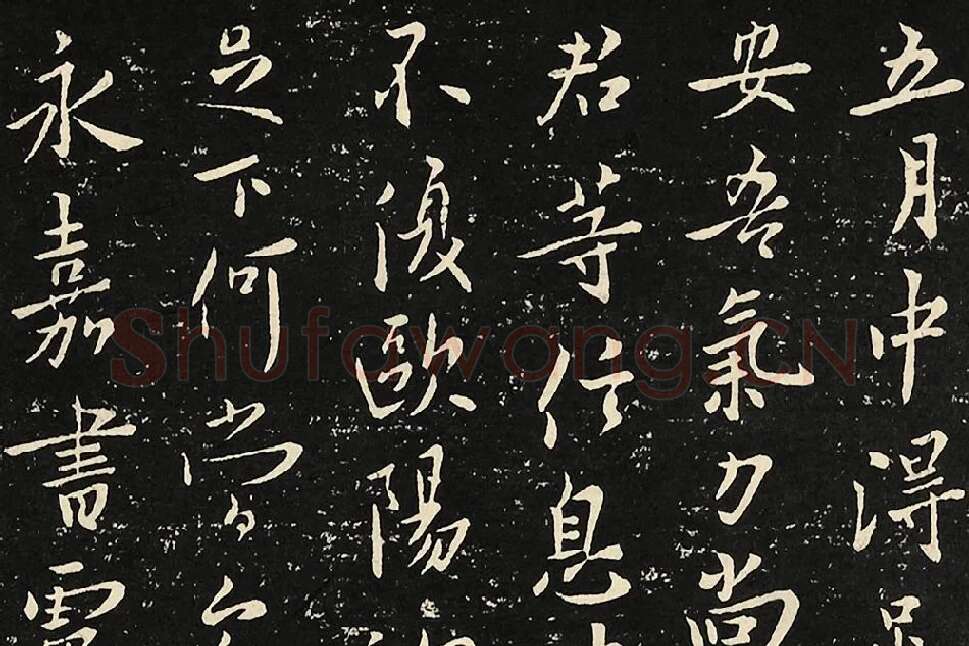 五月中得
安吾氣力尚
君等信息
不復歐陽
足下何當
永嘉書
Shufawang.CN